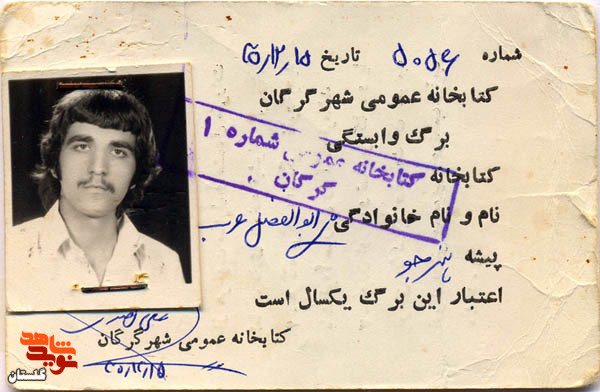 شماره ۵۰۵۶ تاریخ ۵۱،۲،۱۵
کتابخانه عمومی شهر گرگان
برگ وابستگی
کتابخانه
نام و نام خانوادگی ابوالفضل عرب
پیشه هنرجو
اعتبار این برگ یکسال است
کتابخانه عمومی شماره ۱
گرگان
کتابخانه عمومی شهر گرگان
نوید شاهد
گلستان